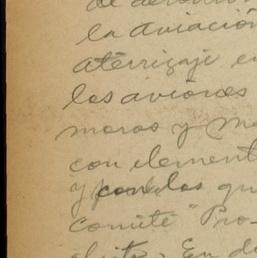 de aeród
la aviación
aterrizaje en
los aviones
moras y
con element
y con los qu
Comité "Pro-
En d